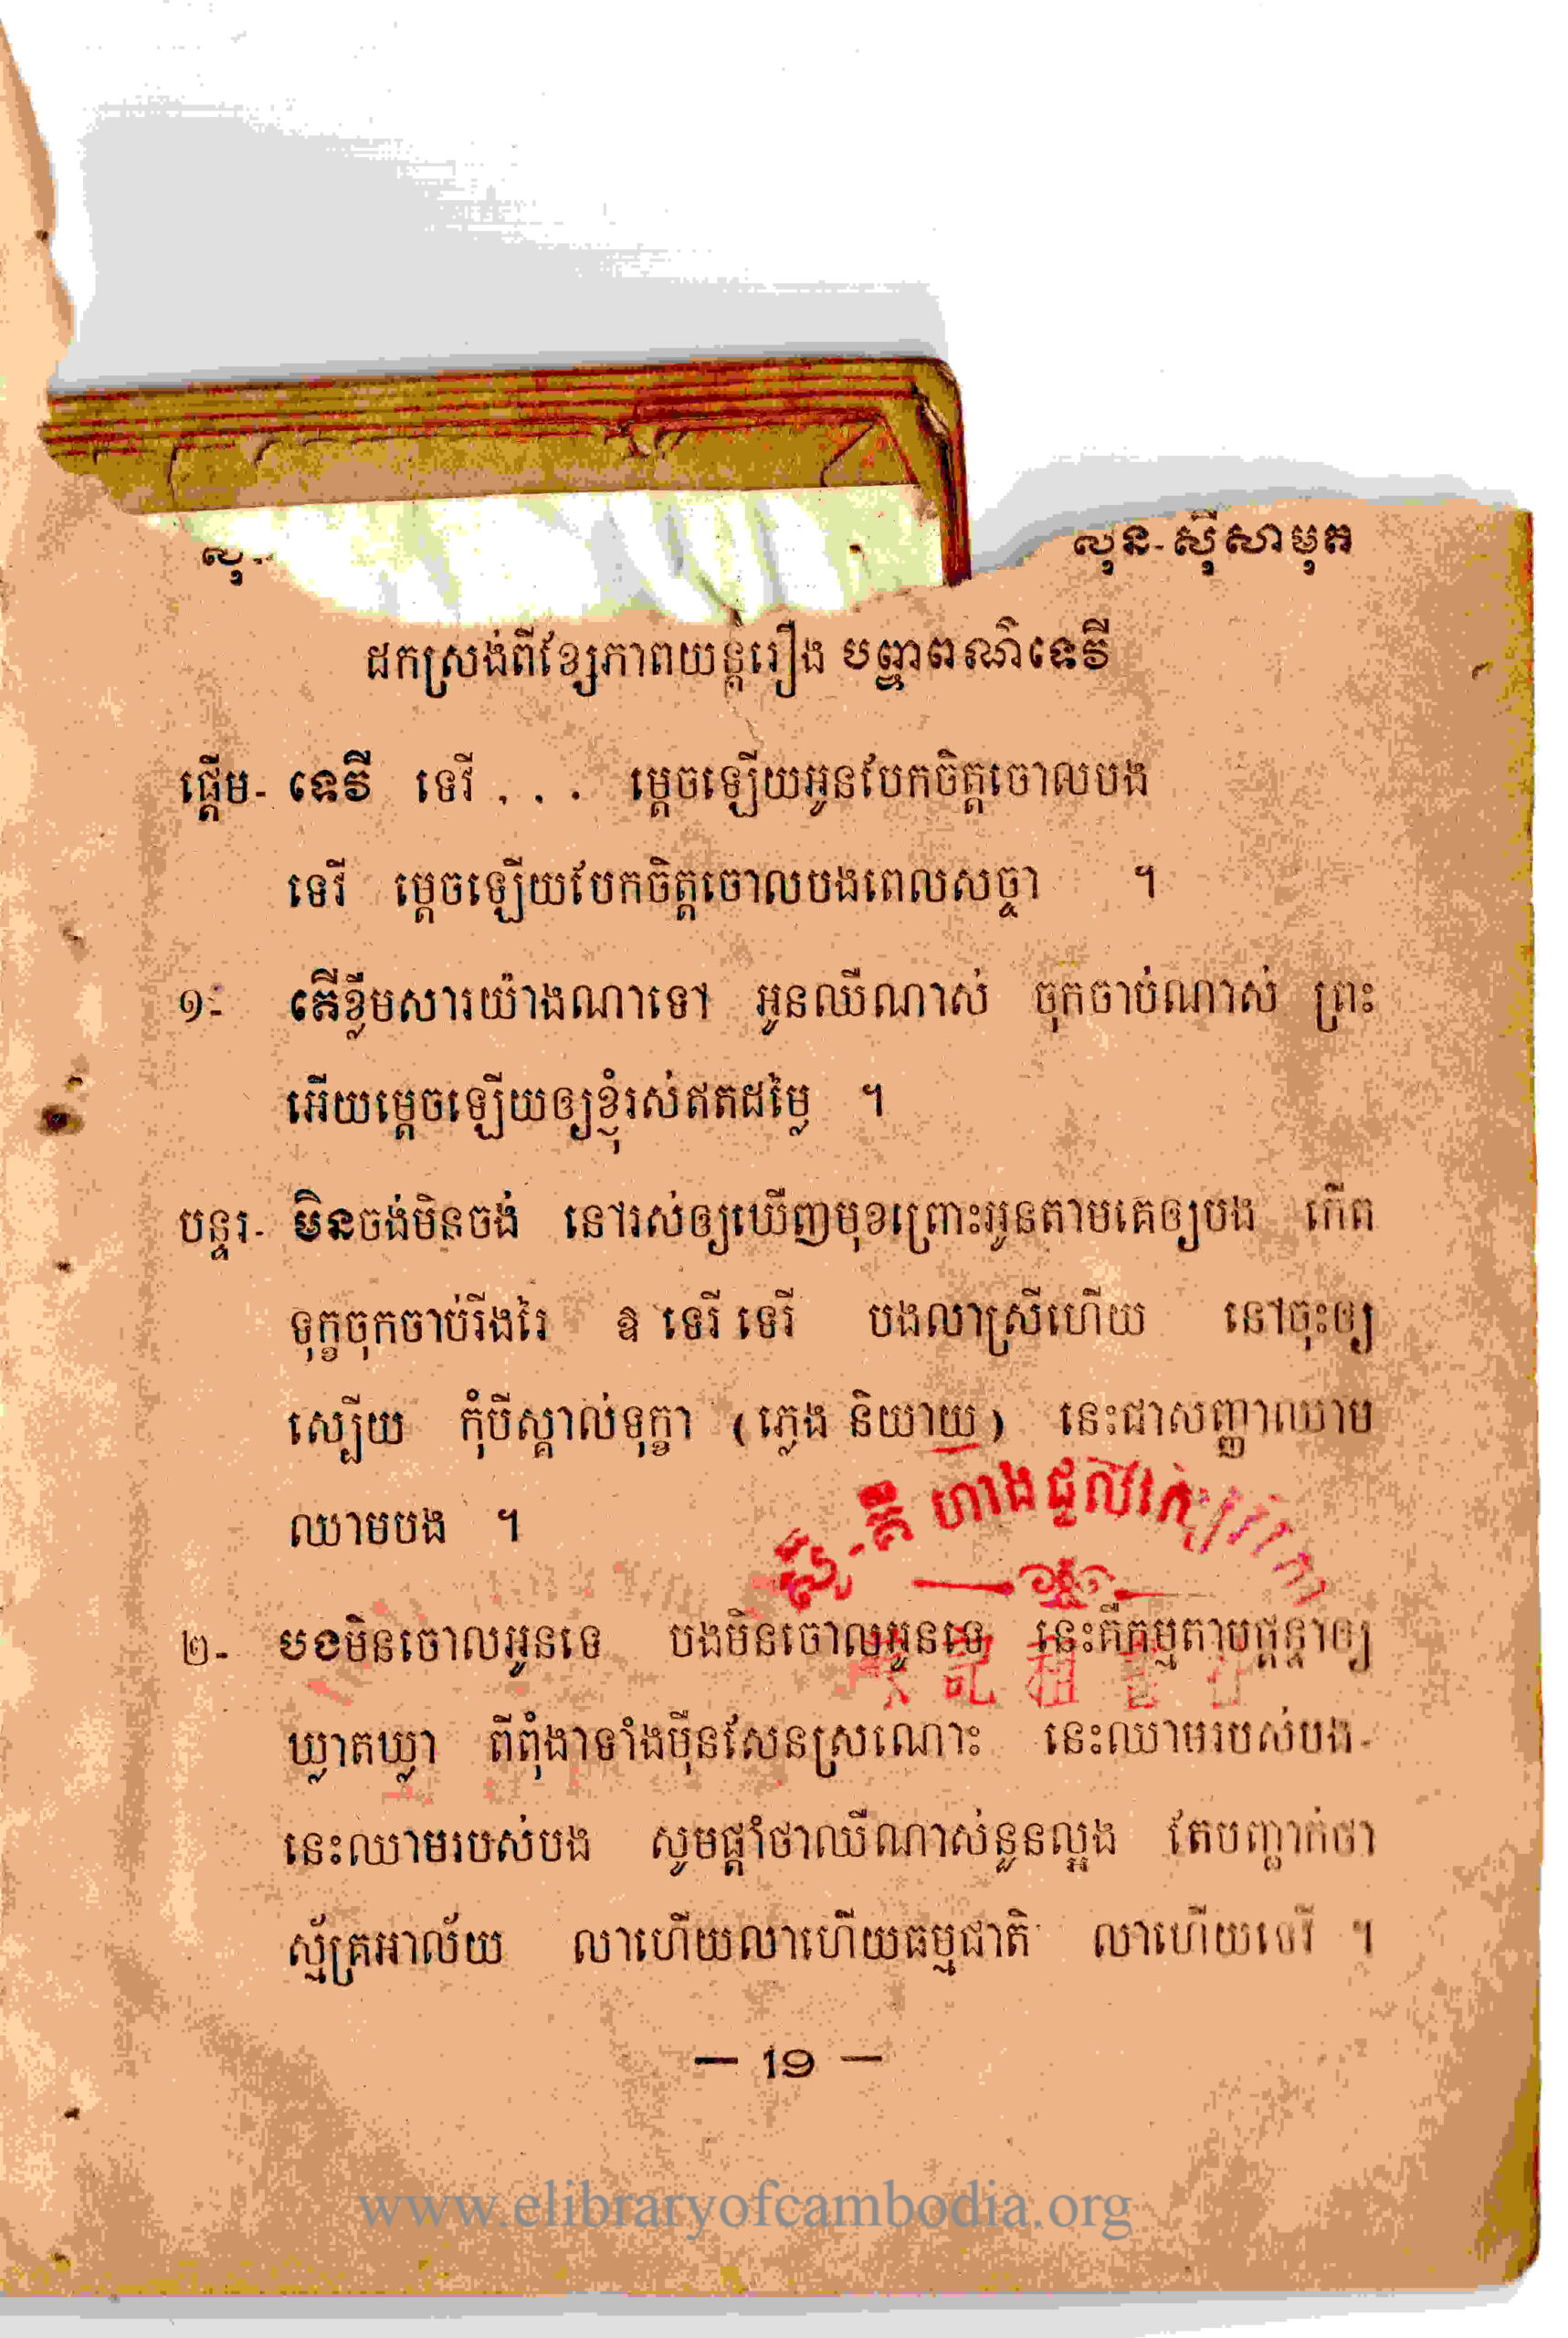 លុន-ស៊ីសាមុត
ដកស្រង់ពីខ្សែភាពយន្តរឿង បញ្ញាពណ៌ទេវី
ផ្ដើម- ទេវី ទេវី . . . ម្ដេចឡើយអូនបែកចិត្តចោលបង
ទេវី ម្ដេចឡើយបែកចិត្តចោលបងពេលសច្ចា ។
១- តើខ្លឹមសារយ៉ាងណាទៅ អូនឈឺណាស់ ចុកចាប់ណាស់ ព្រះ
អើយម្ដេចឡើយឲ្យខ្ញុំរស់ឥតដម្លៃ ។
បន្ទរ- មិនចង់មិនចង់ នៅរស់ឲ្យឃើញមុខព្រោះអូនតាមគេឲ្យបង កើត
ទុក្ខចុកចាប់រីងរៃ ឱ ទេវី ទេវី បងលាស្រីហើយ នៅចុះឲ្យ
ស្បើយ កុំបីស្គាល់ទុក្ខា (ភ្លេង និយាយ) នេះជាសញ្ញាឈាម
ឈាមបង ។
ហាងជួល
២- បងមិនចោលអូនទេ បងមិនចោលអូនទេ នេះគឺកម្មតាមផ្គន្ធាឲ្យ
ឃ្លាតឃ្លា ពីពុំងាទាំងម៉ឺនសែនស្រណោះ នេះឈាមរបស់បង-
នេះឈាមរបស់បង សូមផ្ដាំថាឈឺណាស់នួនល្អង តែបញ្ជាក់ថា
ស្ម័គ្រអាល័យ លាហើយលាហើយធម្មជាតិ លាហើយទេវី ។
— 19 —
www.elibraryofcambodia.org